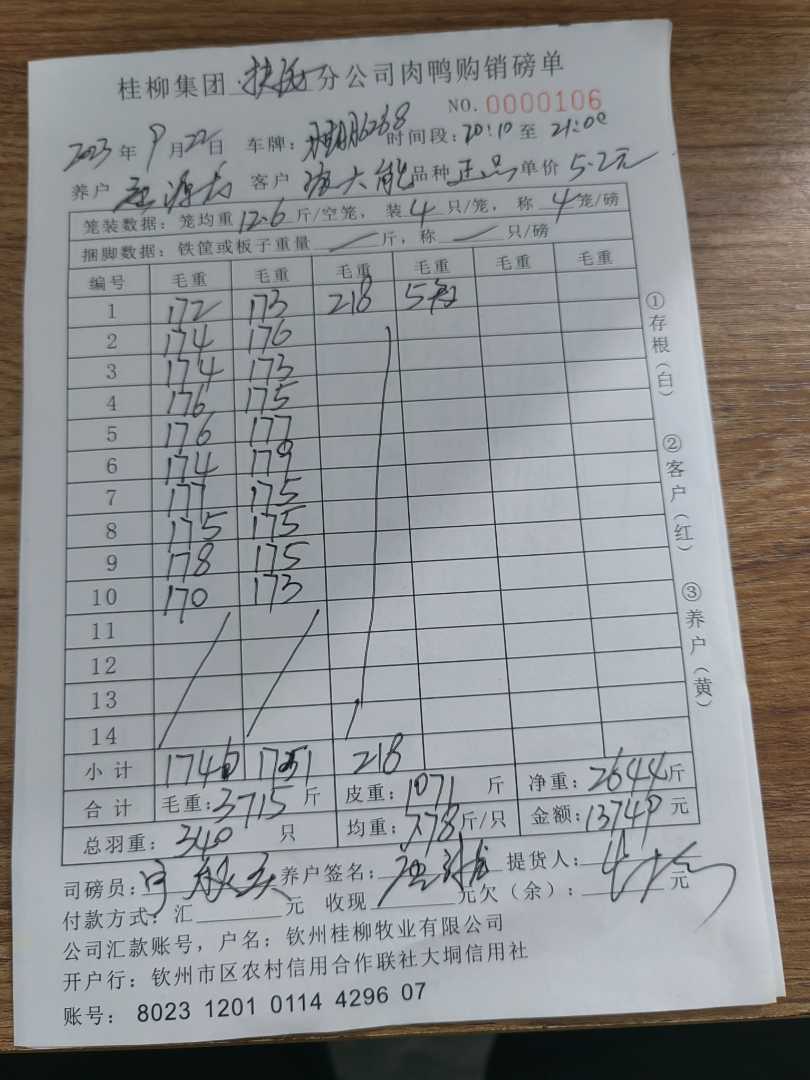 桂柳集团 扶绥 分公司肉鸭购销磅单
NO. 0000106
2023年9月22日 车牌: 6268 时间段: 20:10 至 21:00
养户 源 客户 大能 品种 正品 单价 5.2元
笼装数据: 笼均重 12.6 斤/空笼, 装 4 只/笼, 称 4 笼/磅
捆脚数据: 铁筐或板子重量 — 斤, 称 — 只/磅
编号 毛重 毛重 毛重 毛重 毛重 毛重
1 172 173 218 5
2 174 176
3 174 173
4 176 175
5 176 177
6 174 179
7 177 175
8 175 175
9 178 175
10 170 173
11
12
13
14
小计 1746 1751 218
合计 毛重: 3715 斤 皮重: 1071 斤 净重: 2644 斤
总羽重: 340 只 均重: 7.78 斤/只 金额: 13749 元
司磅员: 养户签名: 提货人:
付款方式: 汇 元 收现 元欠(余): 元
公司汇款账号, 户名: 钦州桂柳牧业有限公司
开户行: 钦州市区农村信用合作联社大垌信用社
账号: 8023 1201 0114 4296 07
①存根(白)
②客户(红)
③养户(黄)